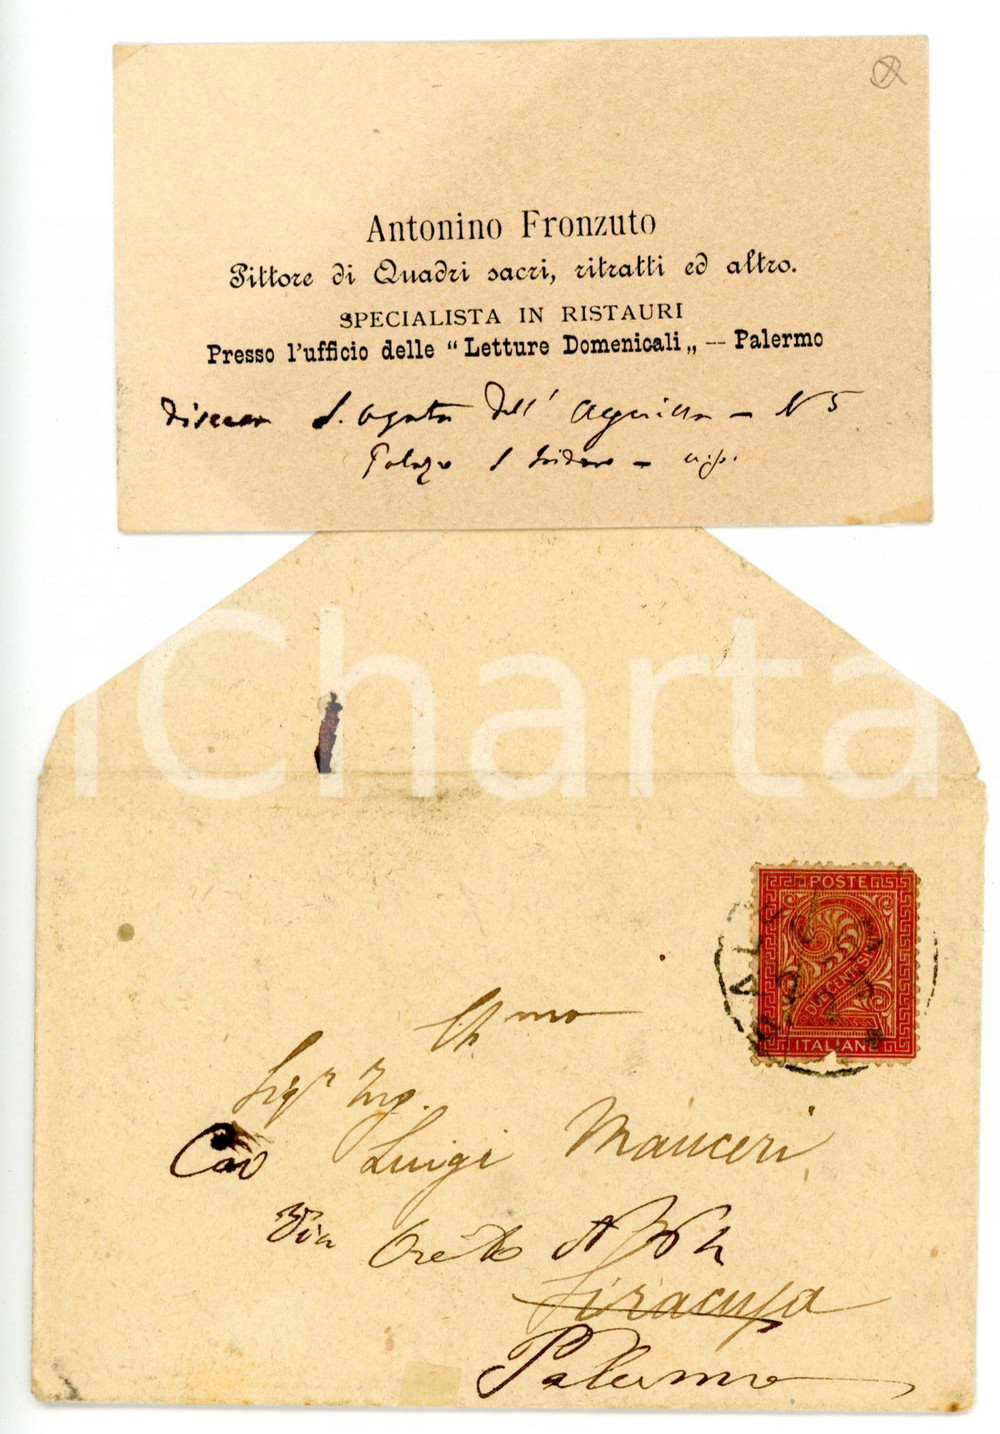 Antonino Fronzuto
Pittore di Quadri sacri, ritratti ed altro.
SPECIALISTA IN RISTAURI
Presso l'ufficio delle “Letture Domenicali„ — Palermo
S. Agata dell' — N 5
Palazzo S Isidoro —
iCharta
POSTE
2
DUE CENTESIMI
ITALIANE
Sigr Ing.
Cav Luigi Manceri
Via Oreto N
Siracusa
Palermo